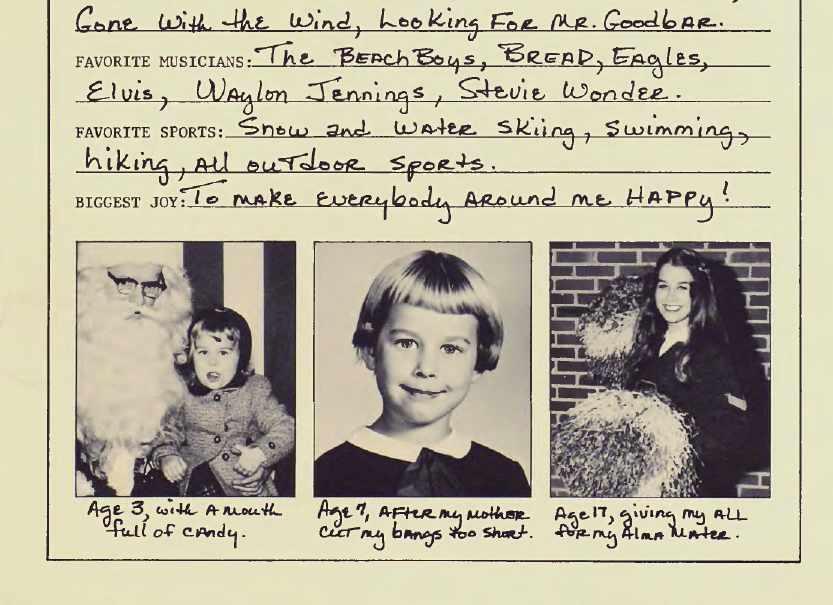 Gone with the Wind, Looking For Mr. Goodbar.
FAVORITE MUSICIANS: The Beach Boys, Bread, Eagles,
Elvis, Waylon Jennings, Stevie Wonder.
FAVORITE SPORTS: Snow and water skiing, swimming,
hiking, all outdoor sports.
BIGGEST JOY: To make everybody around me HAPPY!
Age 3, with a mouth
full of candy.
Age 7, after my mother
cut my bangs too short.
Age 17, giving my ALL
for my Alma Mater.